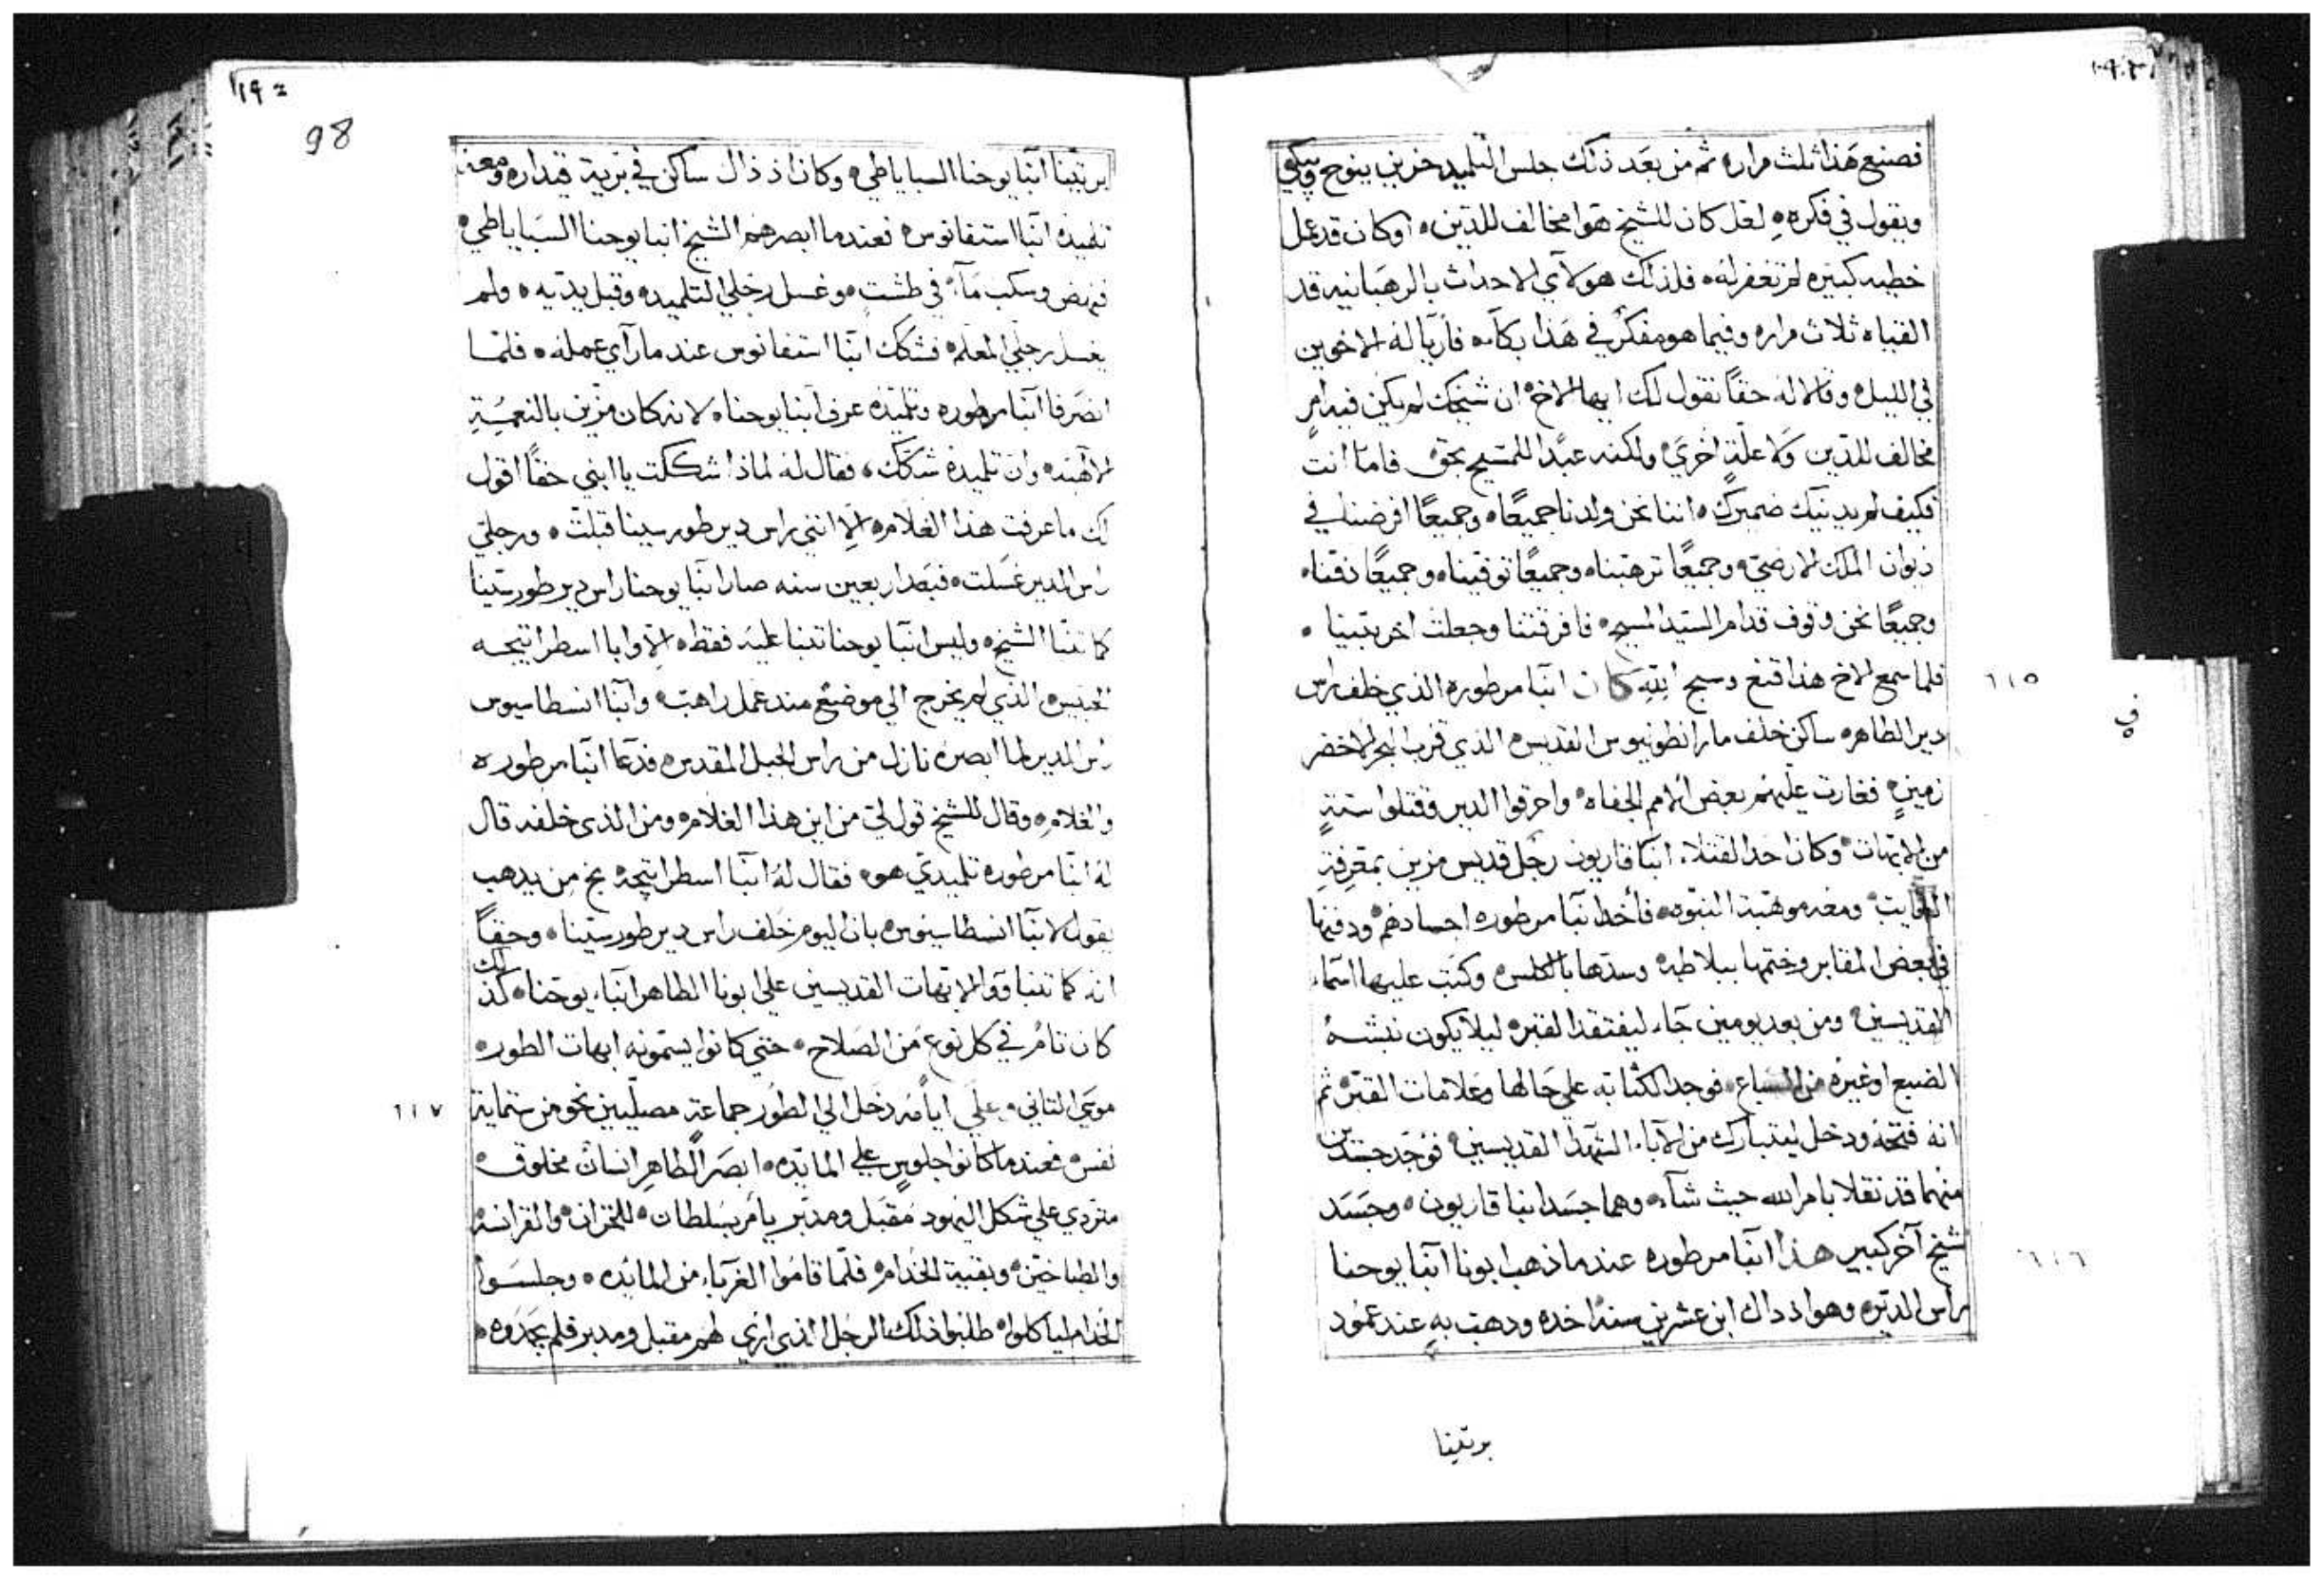 فصنع هذا ثلث مراره ثم من بعد ذلك جلس التلميد حزين ينوح ويبكي
ويقول في فكره لعل كان للشيخ هوا مخالف للدين او كان قد عمل
خطيه كبيره لم تغفر له فلذلك هولاي الاحداث بالرهبانيه قد
القياه ثلاث مراره وفيما هو مفكر في هذا بكاه فاريا له الاخوين
في الليل وقالا له حقًا نقول لك ايها الاخ ان شيخك لم يكن فيه امر
مخالف للدين ولا علة اخري ولكنه عبدًا للمسيح بحق فاما انت
فكيف لم يدينك ضميرك اننا نحن ولدنا جميعًا وجميعًا افرضنا في
ديوان الملك الارضي وجميعًا ترهبنا وجميعًا توفينا وجميعًا دفنا
وجميعًا نحن وقوف قدام السيد المسيح فافرقتنا وجعلت اخر بيننا
فلما سمع الاخ هذا قنع وسبح الله كان انبا مرطوره الذي خلف راس
٦١٥
دير الطاهره ساكن خلف مار انطونيوس القديس الذي قرب البحر الاخضر
زمين فغارت عليهم بعض الامم الجفاه واحرقوا الدير وقتلوا ستة
من الابهات وكان احد القتلاء انبا قاريون رجل قديس مزين بمعرفة
ومعه موهبة النبوه فأخد انبا مرطوره اجسادهم ودفنها
في بعض المقابر وختمها ببلاطه وسدها بالكلس وكتب عليها اسماء
القديسين ومن بعد يومين جاء ليفتقد القبر ليلا يكون نبشه
الضبع اوغيره من السباع فوجد الكتابه علي حالها وعلامات القبر ثم
انه فتحه ودخل ليتبارك من الاباء الشهدا القديسين فوجد جسدين
منهما قد نقلا بامر الله حيث شاء وهما جسد انبا قاريون وجسد
شيخ آخر كبير هذا انبا مرطوره عندما ذهب ابونا انبا يوحنا
٦١٦
راس الدير وهو اد داك ابن عشرين سنة اخده ودهب به عند عمود
برتينا
98
برتينا انبا يوحنا السباياطي وكان اذ ذال ساكن في برية قداره ومعه
تلميده انبا استفانوس فعندما ابصرهم الشيخ انبا يوحنا السباياطي
فنهض وسكب مآء في طشت وغسل رجلي التلميد وقبل يديه ولم
يغسل رجلي المعلم فشكك انبا استفانوس عندما رآي عمله فلما
انصرفا انبا مرطوره وتلميذه عرف انبا يوحنا لانه كان مزين بالنعمة
الالهيه وان تلميده شكك فقال له لماذا شككت يا ابني حقًا اقول
لك ما عرفت هذا الغلام الا انني راس دير طور سينا قبلت ورجلي
راس الدير غسلت فبعد اربعين سنه صار انبا يوحنا راس دير طور سينا
كما تنبا الشيخ وليس انبا يوحنا تنبا عليه فقط الا وابا اسطراتيجه
الحبيس الذي لم يخرج الي موضع منذ عمل راهب وانبا انسطاسيوس
راس الدير لما ابصره نازل من راس الجبل المقدس فدعا انبا مرطوره
والغلام وقال للشيخ قول لي من اين هذا الغلام ومن الذي خلفه قال
له انبا مرطوره تلميدي هو فقال له انبا اسطراتيجه بخ من يدهب
يقول لانبا انسطاسيوس بان اليوم خلف راس دير طور سينا وحقًا
انه كما تنباووا الابهات القديسين علي ابونا الطاهر انباء يوحنا كذلك
كان تام في كل نوع من الصلاح حتي كانوا يسمونه ابهات الطور
موسي الثاني وعلي ايامه دخل الي الطور جماعة مصليين نحو من ستماية
٦١٧
نفس فعندما كانوا جلوس علي المايده ابصر الطاهر انسان مخلوق
متردي علي شكل اليهود مقبل ومدبر يأمر بسلطان للخزان والفرانسه
والطباخين وبقية الخدام فلما قاموا الغرباء من المايده وجلسوا
الخدام لياكلوا طلبوا ذلك الرجل الذي اري لهم مقبل ومدبر فلم يجدوه